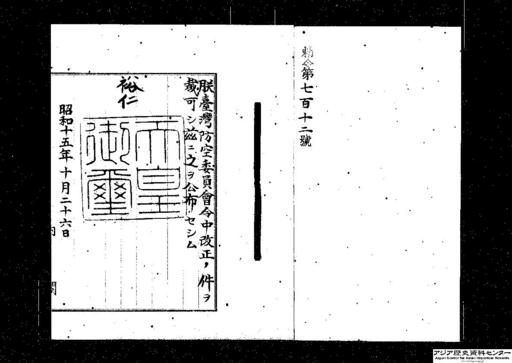 勅令第七百十二號
朕臺灣防空委員會令中改正ノ件ヲ
裁可シ茲ニ之ヲ公布セシム
裕仁
天皇御璽
昭和十五年十月二十六日
内閣
アジア歴史資料センター
Japan Center for Asian Historical Records